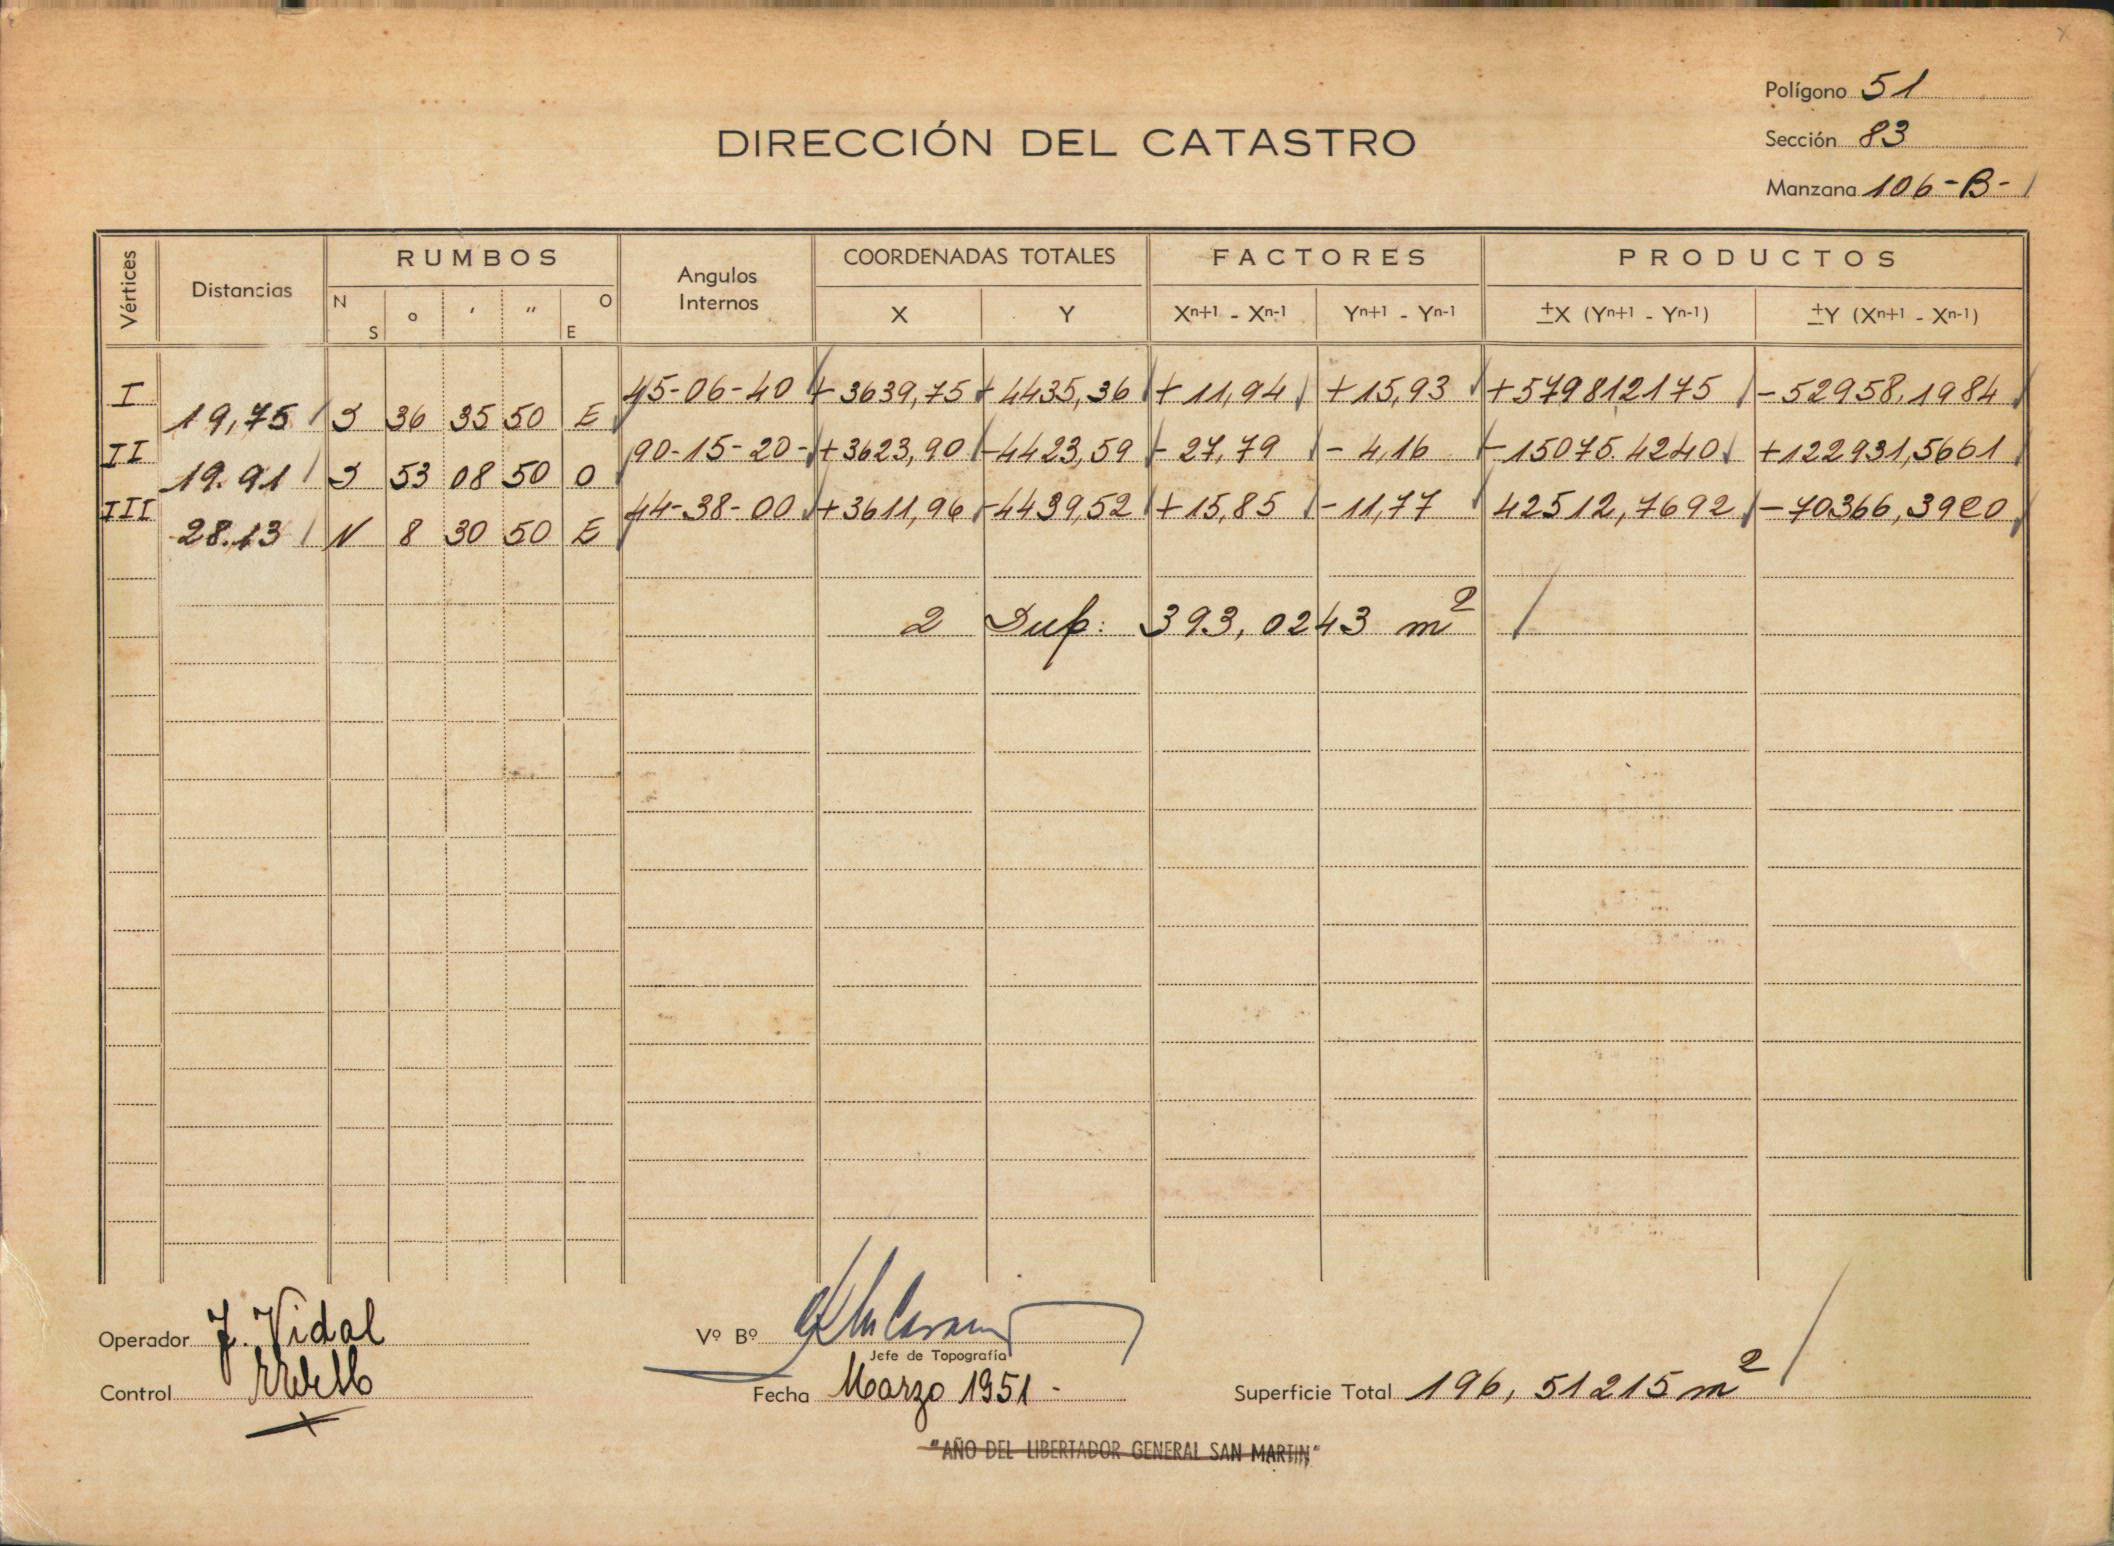 Polígono 51
DIRECCIÓN DEL CATASTRO
Sección 83
Manzana 106-B-
Vértices Distancias RUMBOS Angulos Internos COORDENADAS TOTALES FACTORES PRODUCTOS
N S o ' " O E X Y Xn+1 - Xn-1 Yn+1 - Yn-1 ±X (Yn+1 - Yn-1) ±Y (Xn+1 - Xn-1)
I 45-06-40 +3639,75 -4435,36 +11,94 +15,93 +579812175 -52958.1984
19,75 S 36 35 50 E
II 90-15-20- +3623,90 -4423,59 -27,79 -4,16 -15075.4240 +122931,5661
19.91 S 53 08 50 O
III 44-38-00 +3611,96 -4439,52 +15,85 -11,77 42512,7692 -70366,3920
28.13 N 8 30 50 E
2 Sup: 393,0243 m2
Operador J. Vidal
Vº Bº
Jefe de Topografía
Control
Fecha Marzo 1951-
Superficie Total 196,51215 m2
"AÑO DEL LIBERTADOR GENERAL SAN MARTIN"